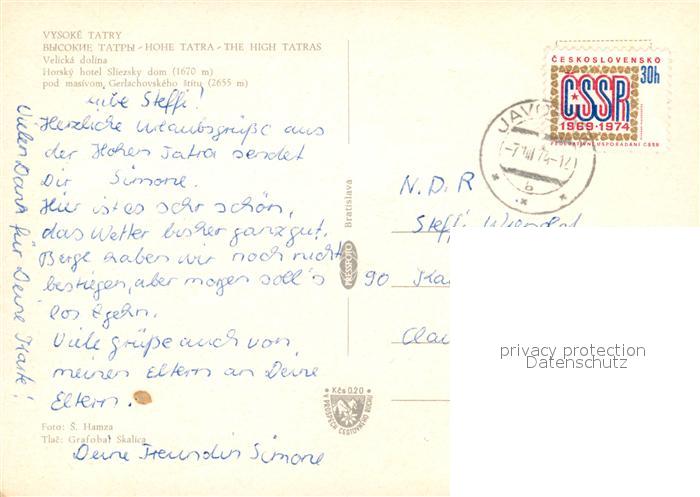 VYSOKÉ TATRY
ВЫСОКИЕ ТАТРЫ - HOHE TATRA - THE HIGH TATRAS
Velická dolina
Horský hotel Sliezsky dom (1670 m)
pod masívom Gerlachovského štítu (2655 m)
Liebe Steffi!
Herzliche Urlaubsgrüße aus
der Hohen Tatra sendet
Dir Simone.
Hier ist es sehr schön,
das Wetter bisher ganz gut.
Berge haben wir noch nicht
bestiegen, aber morgen soll's
los gehn.
Viele grüße auch von
meinen Eltern an Deine
Eltern.
Deine Freundin Simone
Vielen Dank für Deine Karte!
Foto: Š. Hamza
Tlač: Grafobal Skalica
Bratislava
PRESSFOTO
Kčs 0,20
V PROSPECH CESTOVNÉHO RUCHU
ČESKOSLOVENSKO
30h
ČSSR
1969-1974
FEDERATIVNÍ USPOŘÁDÁNÍ ČSSR
b
N.D.R
Steffi
90
privacy protection
Datenschutz